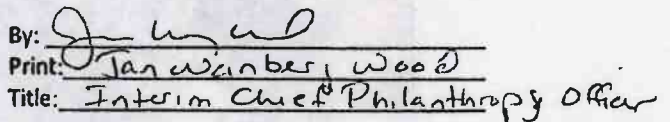 By:
Print: Jan Wanberg Wood
Title: Interim Chief Philanthropy Officer